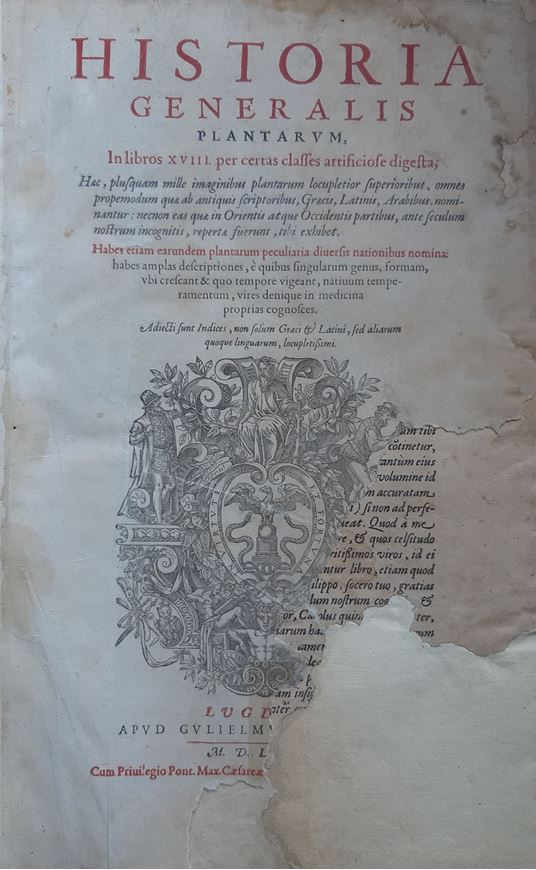 HISTORIA
GENERALIS
PLANTARVM,
In libros XVIII. per certas classes artificiose digesta,
Hæc, plusquam mille imaginibus plantarum locupletior superioribus, omnes
propemodum quæ ab antiquis scriptoribus, Græcis, Latinis, Arabibus. nomi-
nantur: necnon eas quæ in Orientis atque Occidentis partibus, ante seculum
nostrum incognitis, repertæ fuerunt, tibi exhibet.
Habes etiam earundem plantarum peculiaria diuersis nationibus nomina:
habes amplas descriptiones, è quibus singularum genus, formam,
vbi crescant & quo tempore vigeant, natiuum tempe-
ramentum, vires denique in medicina
proprias cognosces.
Adiecti sunt Indices, non solum Græci & Latini, sed aliarum
quoque linguarum, locupletissimi.
am tibi
cōtinetur,
tantùm eius
volumine id
m accuratam
i) si non ad perfe-
ueat. Quod à me
re, & quos celsitudo
ritissimos viros, id ei
ntur libro, etiam quod
ilippo, socero tuo, gratias
lum nostrum &
or, quin ter,
iarum um
am
VIRTUTE
LUGD
APVD GVLIELMV
M. D. L
Cum Priuilegio Pont. Max. Cæsareæ